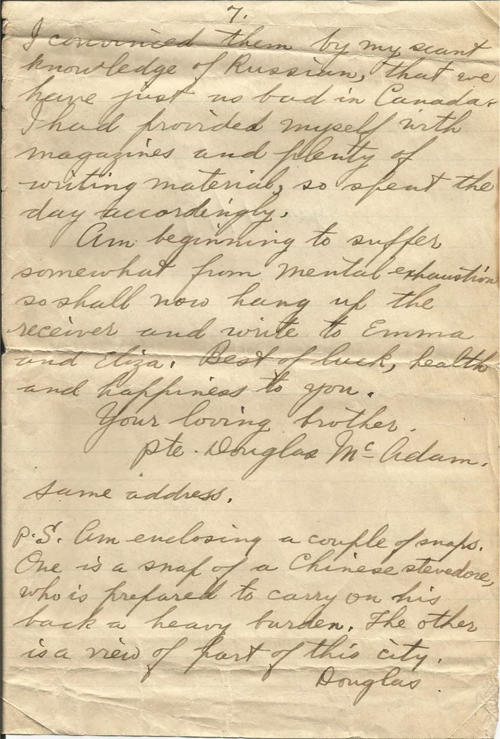 7.
I convinced them by my scant
knowledge of Russian, that we
have just as bad in Canada.
I had provided myself with
magazines and plenty of
writing material, so spent the
day accordingly.
Am beginning to suffer
somewhat from mental exhaustion
so shall now hang up the
receiver and write to Emma
and Eliza. Best of luck, health
and happiness to you.
Your loving brother.
Pte. Douglas McAdam.
same address.
P.S. Am enclosing a couple of snaps.
One is a snap of a Chinese stevedore,
who is prepared to carry on his
back a heavy burden. The other
is a view of part of this city.
Douglas.